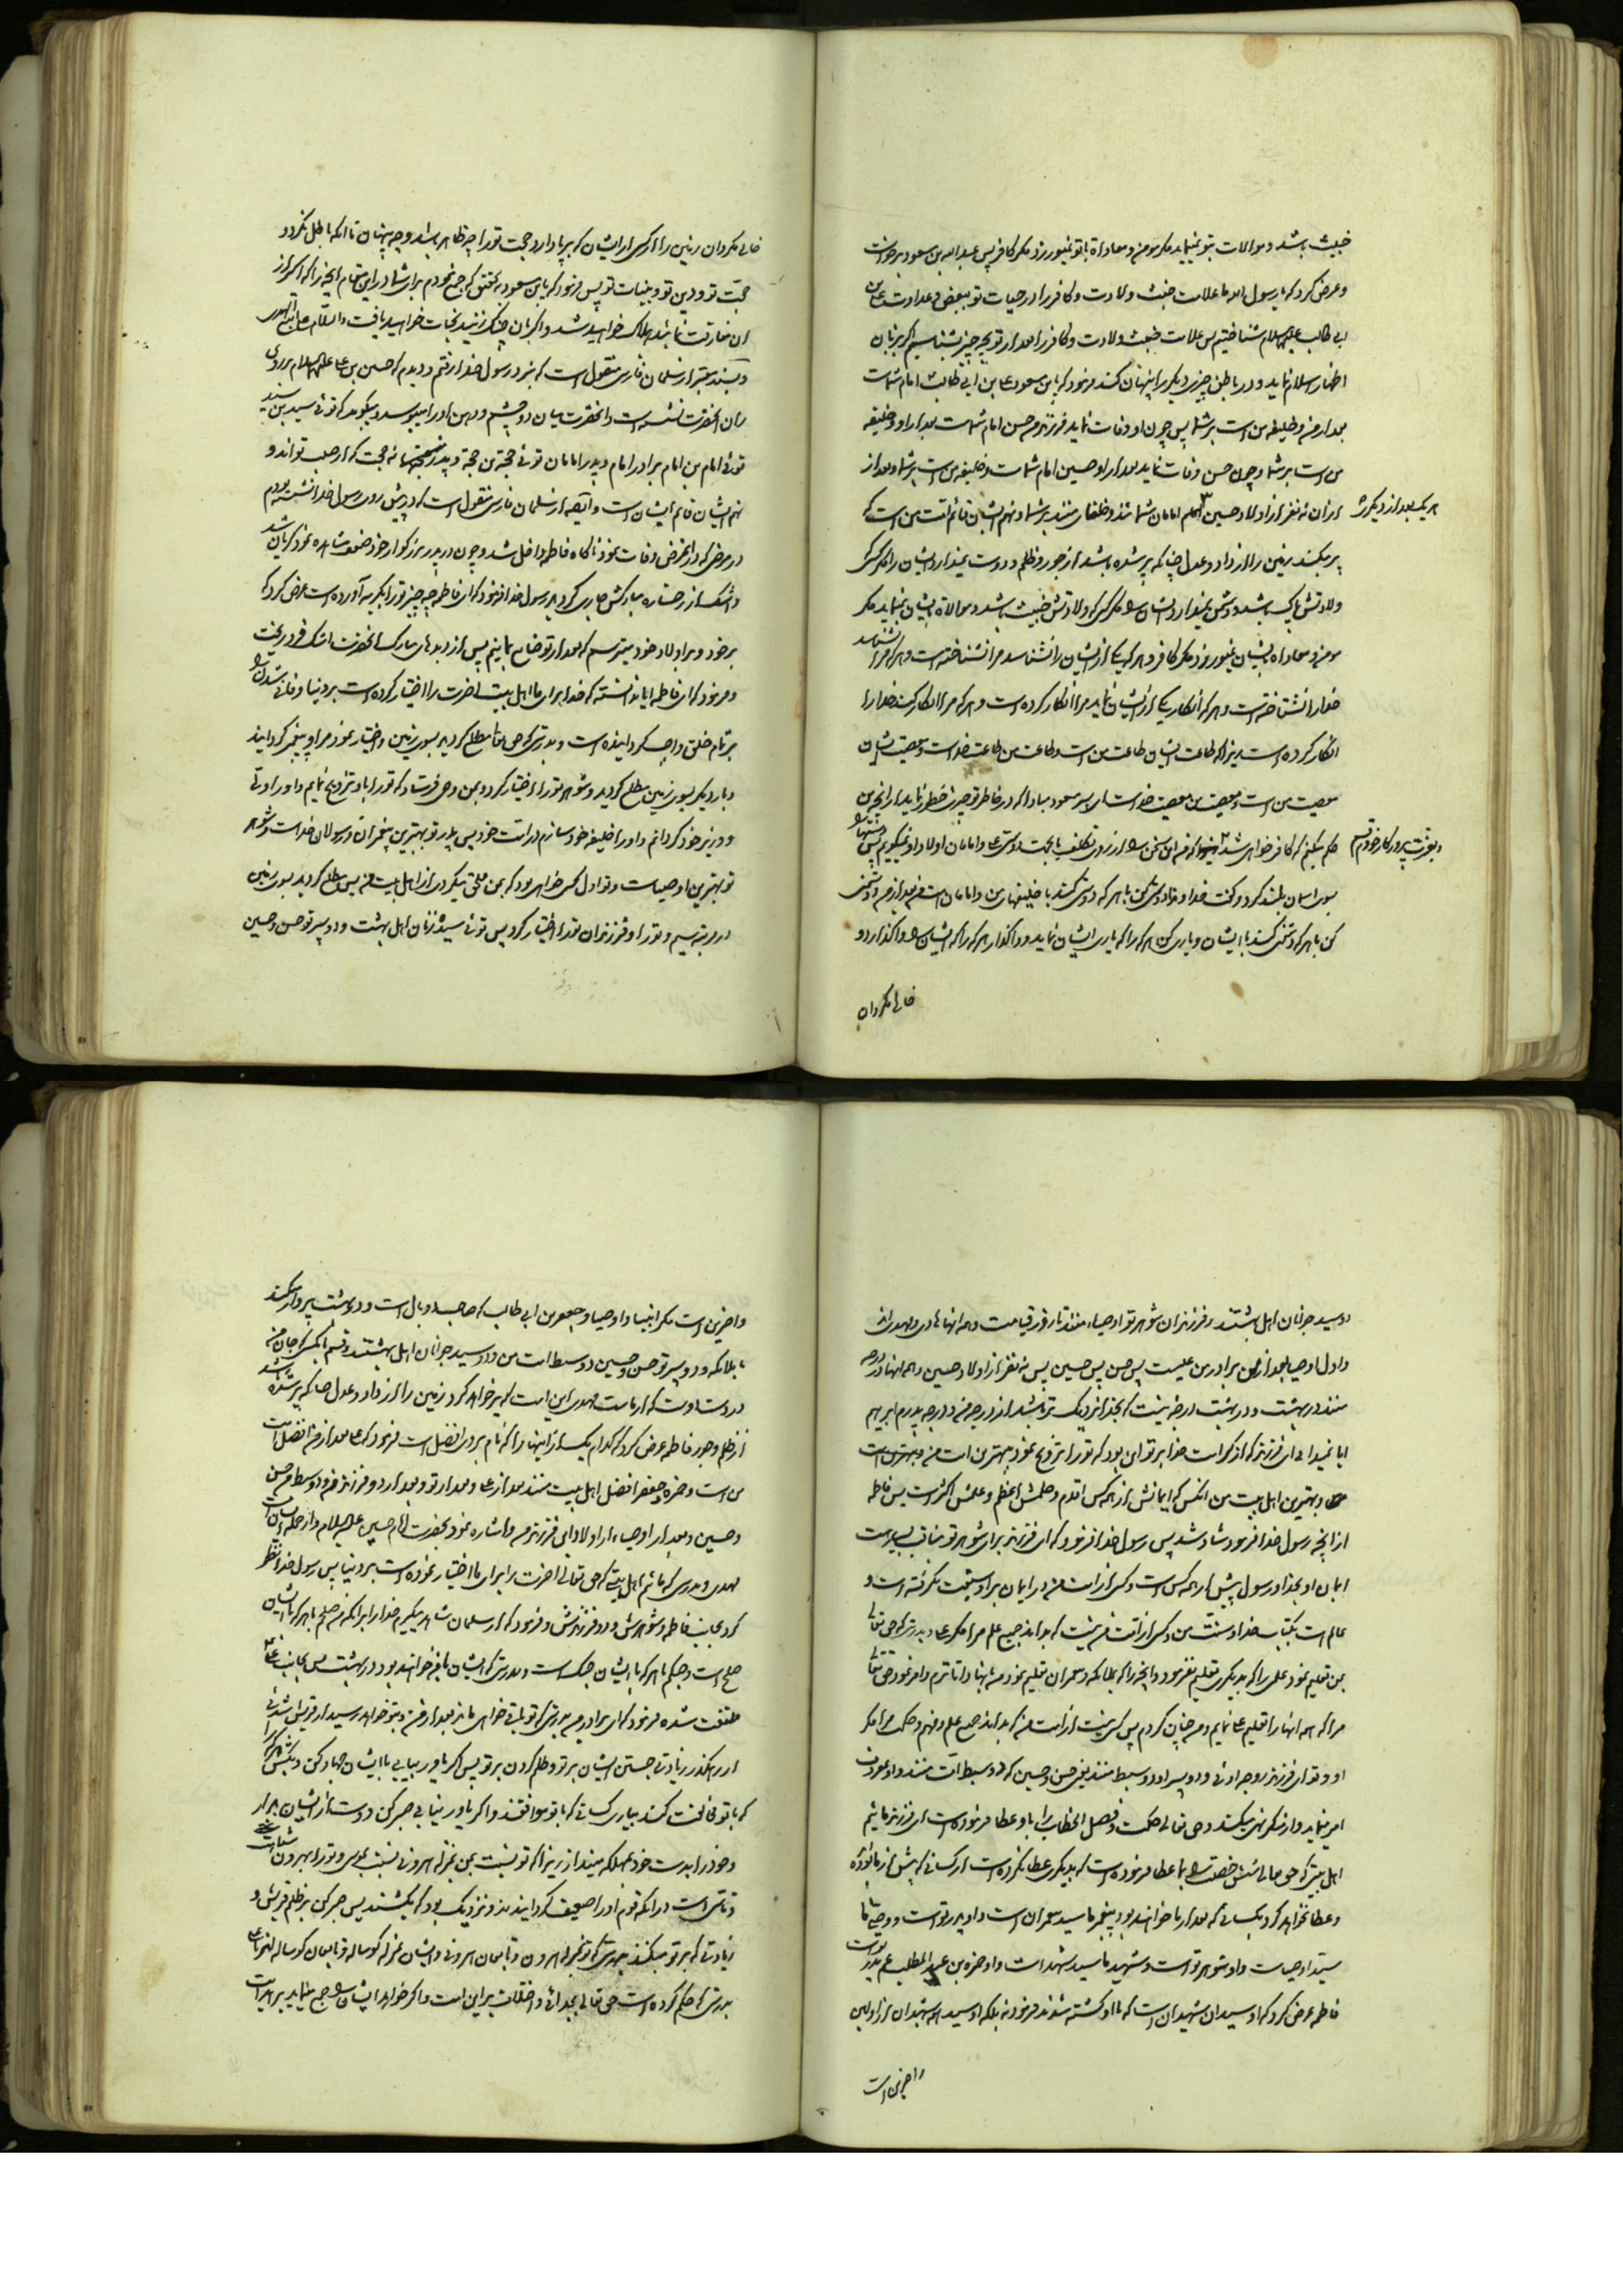 خبیث باشد و موالات بتو نمینماید مکر مومن و معاداة با تو نمیورزد مکر کافر پس عبد الله بن مسعود برخواست
و عرض کرد که یا رسول الله ما علامت خبث ولادت و کافر را در حیات تو ببغض و عداوت علی بن
ابی طالب علیه السلام شناختیم پس علامت خبث ولادت و کافر بعد از تو بچه چیز بشناسیم اکر بزبان
اظهار اسلام نماید و در باطن چیز دیکر را پنهان کند فرمود که یا بن مسعود علی بن ابی طالب امام شماست
بعد از من و خلیفه من است بر شما پس چون او وفات نماید فرزندم حسن امام شماست بعد از او و خلیفه
من است بر شما و چون حسن وفات نماید بعد از او حسین امام شماست و خلیفه من است بر شما و بعد از
هر یک بعد از دیکری
از ان نه نفر از اولاد حسین امامان شما اند و خلفای منند بر شما و نهم ایشان قائم امت من است که
پر میکند زمین را از داد و عدل چنانکه پر شده باشد از جور و ظلم و دوست نمیدارد ایشان را مکر کسی که
ولادتش پاک باشد و دشمن نمیدارد ایشان را مکر کسی که ولادتش خبیث باشد و موالاة ایشان نمینماید مکر
مومن و معاداة بایشان نمیورزد مکر کافر و هر که یکی از ایشان را نشناسد مرا نشناخته است و هر که مرا نشناسد
خدا را نشناخته است و هر که انکار یکی از ایشان نماید مرا انکار کرده است و هر که مرا انکار کند خدا را
انکار کرده است زیرا که طاعت ایشان طاعت من است و طاعت من طاعت خداست و معصیت ایشان
معصیت من است و معصیت من معصیت خداست ای پسر مسعود مبادا که در خاطر تو چیزی خطور نماید از انچه من
حکم میکنم که کافر خواهی شد و بعزت پروردکار خودم قسم که من این سخن را از روی تکلف یا محبت دوستی علی و امامان اولاد او نمیکویم پس دستها را
بسوی اسمان بلند کرد و کفت خداوندا دوستی کن با هر که دوستی کند با خلیفهای من و امامان امت من بعد از من و دشمنی
کن با هر که دشمنی کند با ایشان و یاری کن هر که را که یاری ایشان نماید و واکذار هر که را که ایشان را واکذارد و
خالی مکردان
خالی مکردان زمین را از کسی از ایشان که برپا دارد حجت تو را چه ظاهر باشد و چه پنهان تا انکه باطل نکردد
حجت تو و دین تو و بینات تو پس فرمود که یا بن مسعود بتحقیق که جمع نمودم برای شما در این مقام انچیزی را که اکر از
ان مفارقت نمائید هلاک خواهید شد و اکر بان چنک زنید نجات خواهید یافت والسلام علی من اتبع الهدی
و بسند معتبر از سلمان فارسی منقول است که نزد رسول خدا رفتم و دیدم که حسین بن علی علیه السلام بر روی
ران انحضرت نشسته است و انحضرت میان دو چشم و دهن او را میبوسد و میکوید که توئی سید بن سید
توئی امام بن امام برادر امام و پدر امامان توئی حجة بن حجة و پدر نه حجت که از صلب تو اند و
نهم ایشان قائم ایشان است و ایضا از سلمان فارسی منقول است که در پیش روی رسول خدا نشسته بودم
در مرضی که در انمرض وفات نمود ناکاه فاطمه داخل شد و چون در پدر بزرکوار خود ضعف مشاهده نمود کریان شد
و اشک از رخساره مبارکش جاری کردید رسول خدا فرمود که ای فاطمه چه چیز تو را بکریه آورده است عرض کرد که
بر خود و بر اولاد خود میترسم که بعد از تو ضایع بمانیم پس از دیدهای مبارک انحضرت اشک فرو ریخت
و فرمود که ای فاطمه ایا ندانسته که خدا برای ما اهل بیت اخرت را اختیار کرده است بر دنیا و فانی شدن را
بر تمام خلق واجب کردانیده است و بدرستی که حق تعالی مطلع کردید بسوی زمین و اختیار نمود مرا و پیغمبر کردانید
و بار دیکر بسوی زمین مطلع کردید و شوهر تو را اختیار کرد و بمن وحی فرستاد که تو را باو تزویج نمایم و او را ولی
و وزیر خود کردانم و او را خلیفه خود سازم در امت خود پس پدر تو بهترین پیغمبران و رسولان خداست و شوهر
تو بهترین اوصیاست و تو اول کسی خواهی بود که بمن ملحق میکردی از اهل بیت من پس مطلع کردید بسوی زمین
در مرتبه سیم و تو را و فرزندان تو را اختیار کرد پس توئی سیده زنان اهل بهشت و دو پسر تو حسن و حسین
دو سید جوانان اهل بهشتند و فرزندان شوهر تو اوصیاء منند تا روز قیامت و همه انها هادی و مهدی اند
و اول اوصیا بعد از من برادر من علیست پس حسن پس حسین پس نه نفر از اولاد حسین و همه انها در درجه
منند در بهشت و در بهشت درجه نیست که بخدا نزدیک تر باشد از درجه من و درجه پدرم ابرهیم
ایا نمیدانی ای فرزند که از کرامت خدا بر تو این بود که تو را تزویج نمود بهترین امت من
و بهترین اهل بیت من انکس که ایمانش از همه کس اقدم و حلمش اعظم و علمش اکثر است پس فاطمه
از انچه رسول خدا فرمود شاد شد پس رسول خدا فرمود که ای فرزند برای شوهر تو مناقب بسیار است
ایمان او بخدا و رسول پیش از همه کس است و کسی از امت من در ایمان بر او سبقت نکرفته است و
عالم است بکتاب خدا و سنت من و کسی از امت من نیست که بداند جمیع علم مرا مکر علی و بدرستی که حق تعالی
بمن تعلیم نمود علمی را که بدیکری تعلیم نفرمود و انچه را که بملائکه و پیغمبران تعلیم نمود من بانها داناترم و امر فرمود حق تعالی
مرا که همه انها را تعلیم علی نمایم و من چنان کردم پس کسی نیست از امت من که بداند جمیع علم و فهم و حکمت مرا مکر
او و تو ای فرزند زوجه اوئی و دو پسر او دو سبط منند یعنی حسن و حسین که دو سبط امت منند و او بمعروف
امر مینماید و از منکر نهی میکند و حق تعالی حکمت و فصل الخطاب را باو عطا فرموده است ای فرزند ما ئیم
اهل بیتی که حق تعالی شش خصلت را بما عطا فرموده است که بدیکری عطا نکرده است از کسانی که پیش از ما بوده
و عطا نخواهد کرد بکسانی که بعد از ما خواهند بود پیغمبر ما سید پیغمبران است و او پدر تو است و وصی ما
سید اوصیاست و او شوهر تو است و شهید ما سید شهداست و او حمزه بن عبد المطلب عم پدر تو است
فاطمه عرض کرد که او سید ان شهیدان است که با او کشته شدند فرمود نه بلکه او سید همه شهیدان از اولین
و اخرین است
و اخرین است مکر انبیا و اوصیا و جعفر بن ابی طالب که صاحب دو بال است و در بهشت پرواز میکند
با ملائکه و دو پسر تو حسن و حسین دو سبط امت من و دو سید جوانان اهل بهشتند و قسم بانکس که جان من
در دست اوست که از ماست مهدی این امت که پر خواهد کرد زمین را از داد و عدل چنانکه پر شده باشد
از ظلم و جور فاطمه عرض کرد که کدام یک از اینها را که نام بردی افضل است فرمود که علی بعد از من افضل امت
من است و حمزه و جعفر افضل اهل بیت منند بعد از علی و بعد از تو و بعد از دو فرزند من و دو سبط من حسن
و حسین و بعد از اوصیاء از اولاد این فرزند من و اشاره نمود بحضرت امام حسین علیه السلام و از جمله ایشان است
مهدی و بدرستی که ما ئیم اهل بیتی که حق تعالی اخرت را برای ما اختیار نموده است بر دنیا پس رسول خدا نظر
کرد بجانب فاطمه و شوهرش و دو فرزندش و فرمود که ای سلمان شاهد میکیرم خدا را بر انکه من صلحم با هر که با ایشان
صلح است و جنکم با هر که با ایشان بجنک است و بدرستی که ایشان با من خواهند بود در بهشت پس بجانب علی
ملتفت شده فرمود که ای برادر من بدرستی که تو باقی خواهی ماند بعد از من و بتو خواهد رسید از قریش شدتی
از رهکذر زیادتی جستن ایشان بر تو و ظلم کردن بر تو پس اکر یاور بیابی با ایشان جهاد کن و بکش
که با تو مخالفت کند بیاری کسانی که با تو موافقند و اکر یاور نیابی صبر کن و دست از ایشان بردار
و خود را بدست خود بمهلکه مینداز زیرا که تو نسبت بمن بمنزله هرونی نسبت بموسی و تو را بهرون
تاسی است در انکه قوم او را ضعیف کردانیدند و نزدیک بود که بکشند پس صبر کن بر ظلم قریش و
زیادتی که بر تو میکنند بدرستی که تو بمنزله هرون و تابعان هرونی و ایشان بمنزله کوساله و تابعان کوساله اند
بدرستی که حکم کرده است حق تعالی بجدائی و اختلاف بر این امت و اکر خواهد ایشان را جمع مینماید بر هدایت